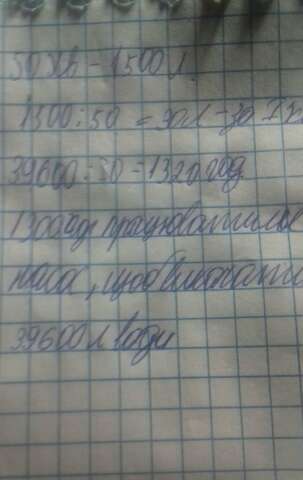 50хв - 1500л.
1500:50 = 30л - за 1хв
39600:30 = 1320год
1300год працюватиме
насос, щоб викачати
39600л води